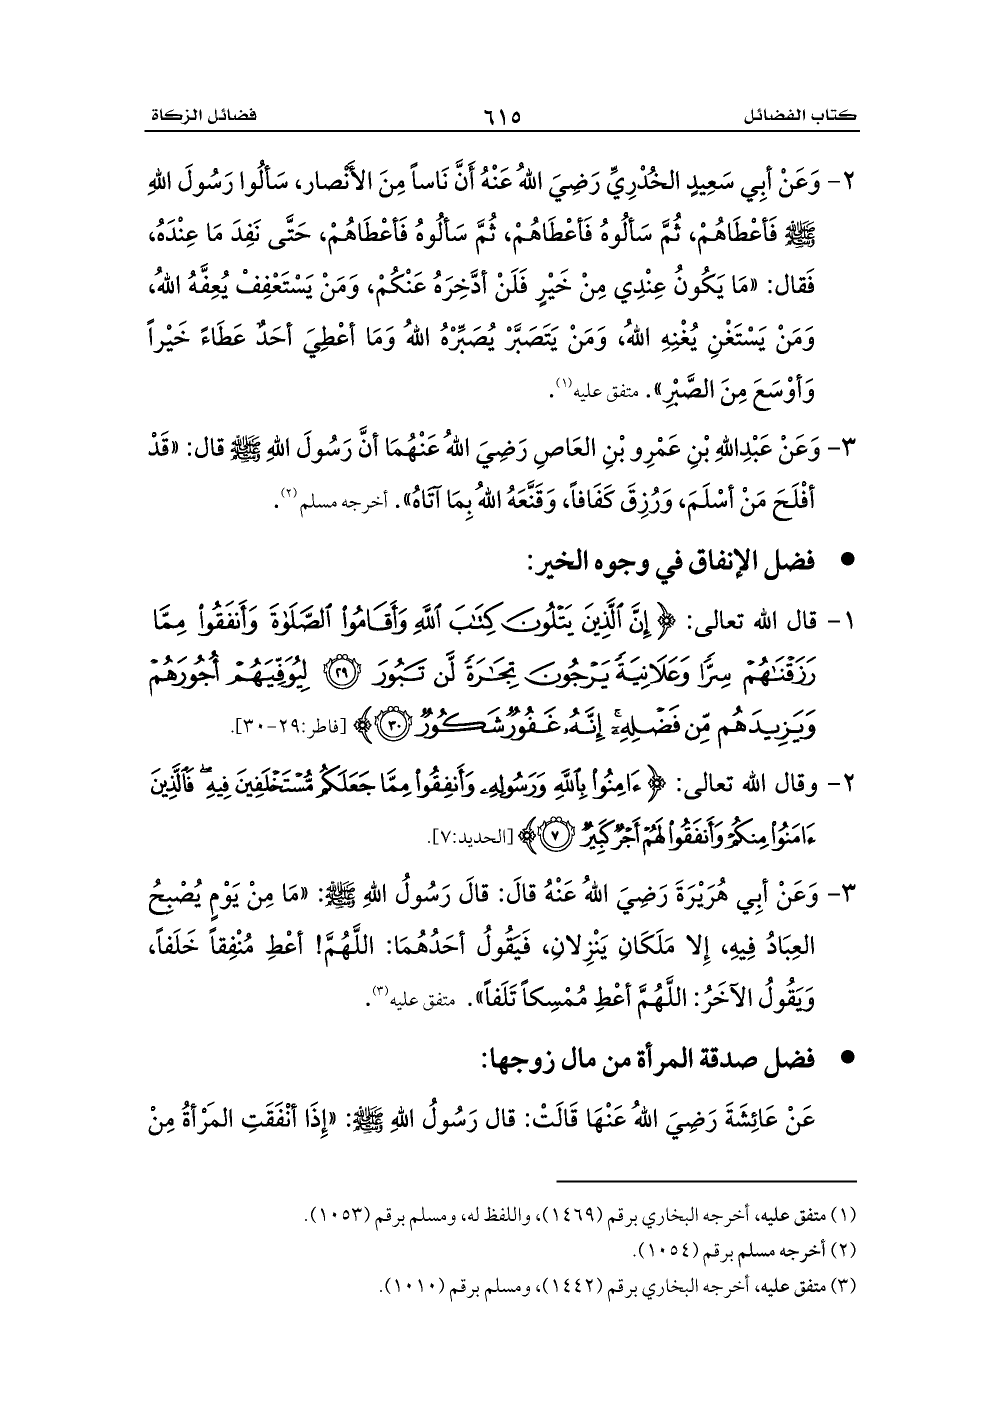 كتاب الفضائل ٦١٥ فضائل الزكاة
٢- وَعَنْ أبِي سَعِيدٍ الخُدْرِيِّ رَضِيَ اللهُ عَنْهُ أنَّ نَاساً مِنَ الأنْصار، سَألُوا رَسُولَ اللهِ
ﷺ فَأعْطَاهُمْ، ثُمَّ سَألُوهُ فَأعْطَاهُمْ، ثُمَّ سَألُوهُ فَأعْطَاهُمْ، حَتَّى نَفِدَ مَا عِنْدَهُ،
فَقال: «مَا يَكُونُ عِنْدِي مِنْ خَيْرٍ فَلَنْ أدَّخِرَهُ عَنْكُمْ، وَمَنْ يَسْتَعْفِفْ يُعِفَّهُ اللهُ،
وَمَنْ يَسْتَغْنِ يُغْنِهِ اللهُ، وَمَنْ يَتَصَبَّرْ يُصَبِّرْهُ اللهُ وَمَا أعْطِيَ أحَدٌ عَطَاءً خَيْراً
وَأوْسَعَ مِنَ الصَّبْرِ». متفق عليه(١).
٣- وَعَنْ عَبْدِاللهِ بْنِ عَمْرِو بْنِ العَاصِ رَضِيَ اللهُ عَنْهُمَا أنَّ رَسُولَ اللهِ ﷺ قال: «قَدْ
أفْلَحَ مَنْ أسْلَمَ، وَرُزِقَ كَفَافاً، وَقَنَّعَهُ اللهُ بِمَا آتَاهُ». أخرجه مسلم(٢).
● فضل الإنفاق في وجوه الخير:
١- قال الله تعالى: ﴿ إِنَّ ٱلَّذِينَ يَتْلُونَ كِتَٰبَ ٱللَّهِ وَأَقَامُوا۟ ٱلصَّلَوٰةَ وَأَنفَقُوا۟ مِمَّا
رَزَقْنَٰهُمْ سِرًّا وَعَلَانِيَةً يَرْجُونَ تِجَٰرَةً لَّن تَبُورَ ٢٩ لِيُوَفِّيَهُمْ أُجُورَهُمْ
وَيَزِيدَهُم مِّن فَضْلِهِۦٓ ۚ إِنَّهُۥ غَفُورٌ شَكُورٌ ٣٠ ﴾ [فاطر:٢٩-٣٠].
٢- وقال الله تعالى: ﴿ ءَامِنُوا۟ بِٱللَّهِ وَرَسُولِهِۦ وَأَنفِقُوا۟ مِمَّا جَعَلَكُم مُّسْتَخْلَفِينَ فِيهِ ۖ فَٱلَّذِينَ
ءَامَنُوا۟ مِنكُمْ وَأَنفَقُوا۟ لَهُمْ أَجْرٌ كَبِيرٌ ٧ ﴾ [الحديد:٧].
٣- وَعَنْ أبِي هُرَيْرَةَ رَضِيَ اللهُ عَنْهُ قالَ: قالَ رَسُولُ اللهِ ﷺ: «مَا مِنْ يَوْمٍ يُصْبِحُ
العِبَادُ فِيهِ، إلا مَلَكَانِ يَنْزِلانِ، فَيَقُولُ أحَدُهُمَا: اللَّهُمَّ! أعْطِ مُنْفِقاً خَلَفاً،
وَيَقُولُ الآخَرُ: اللَّهُمَّ أعْطِ مُمْسِكاً تَلَفاً». متفق عليه(٣).
● فضل صدقة المرأة من مال زوجها:
عَنْ عَائِشَةَ رَضِيَ اللهُ عَنْهَا قَالَتْ: قال رَسُولُ اللهِ ﷺ: «إِذَا أنْفَقَتِ المَرْأةُ مِنْ
(١) متفق عليه، أخرجه البخاري برقم (١٤٦٩)، واللفظ له، ومسلم برقم (١٠٥٣).
(٢) أخرجه مسلم برقم (١٠٥٤).
(٣) متفق عليه، أخرجه البخاري برقم (١٤٤٢)، ومسلم برقم (١٠١٠).